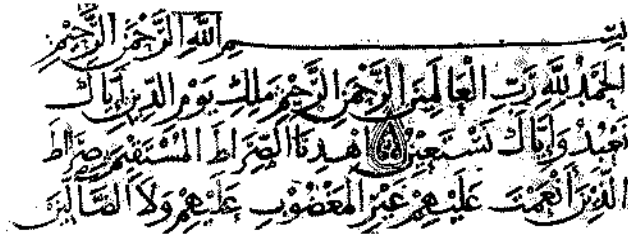 بِسْمِ اللَّهِ الرَّحْمَنِ الرَّحِيمِ
الْحَمْدُ لِلَّهِ رَبِّ الْعَالَمِينَ الرَّحْمَنِ الرَّحِيمِ مَلِكِ يَوْمِ الدِّينِ إِيَّاكَ
نَعْبُدُ وَإِيَّاكَ نَسْتَعِينُ اهْدِنَا الصِّرَاطَ الْمُسْتَقِيمَ صِرَاطَ
الَّذِينَ أَنْعَمْتَ عَلَيْهِمْ غَيْرِ الْمَغْضُوبِ عَلَيْهِمْ وَلَا الضَّالِّينَ